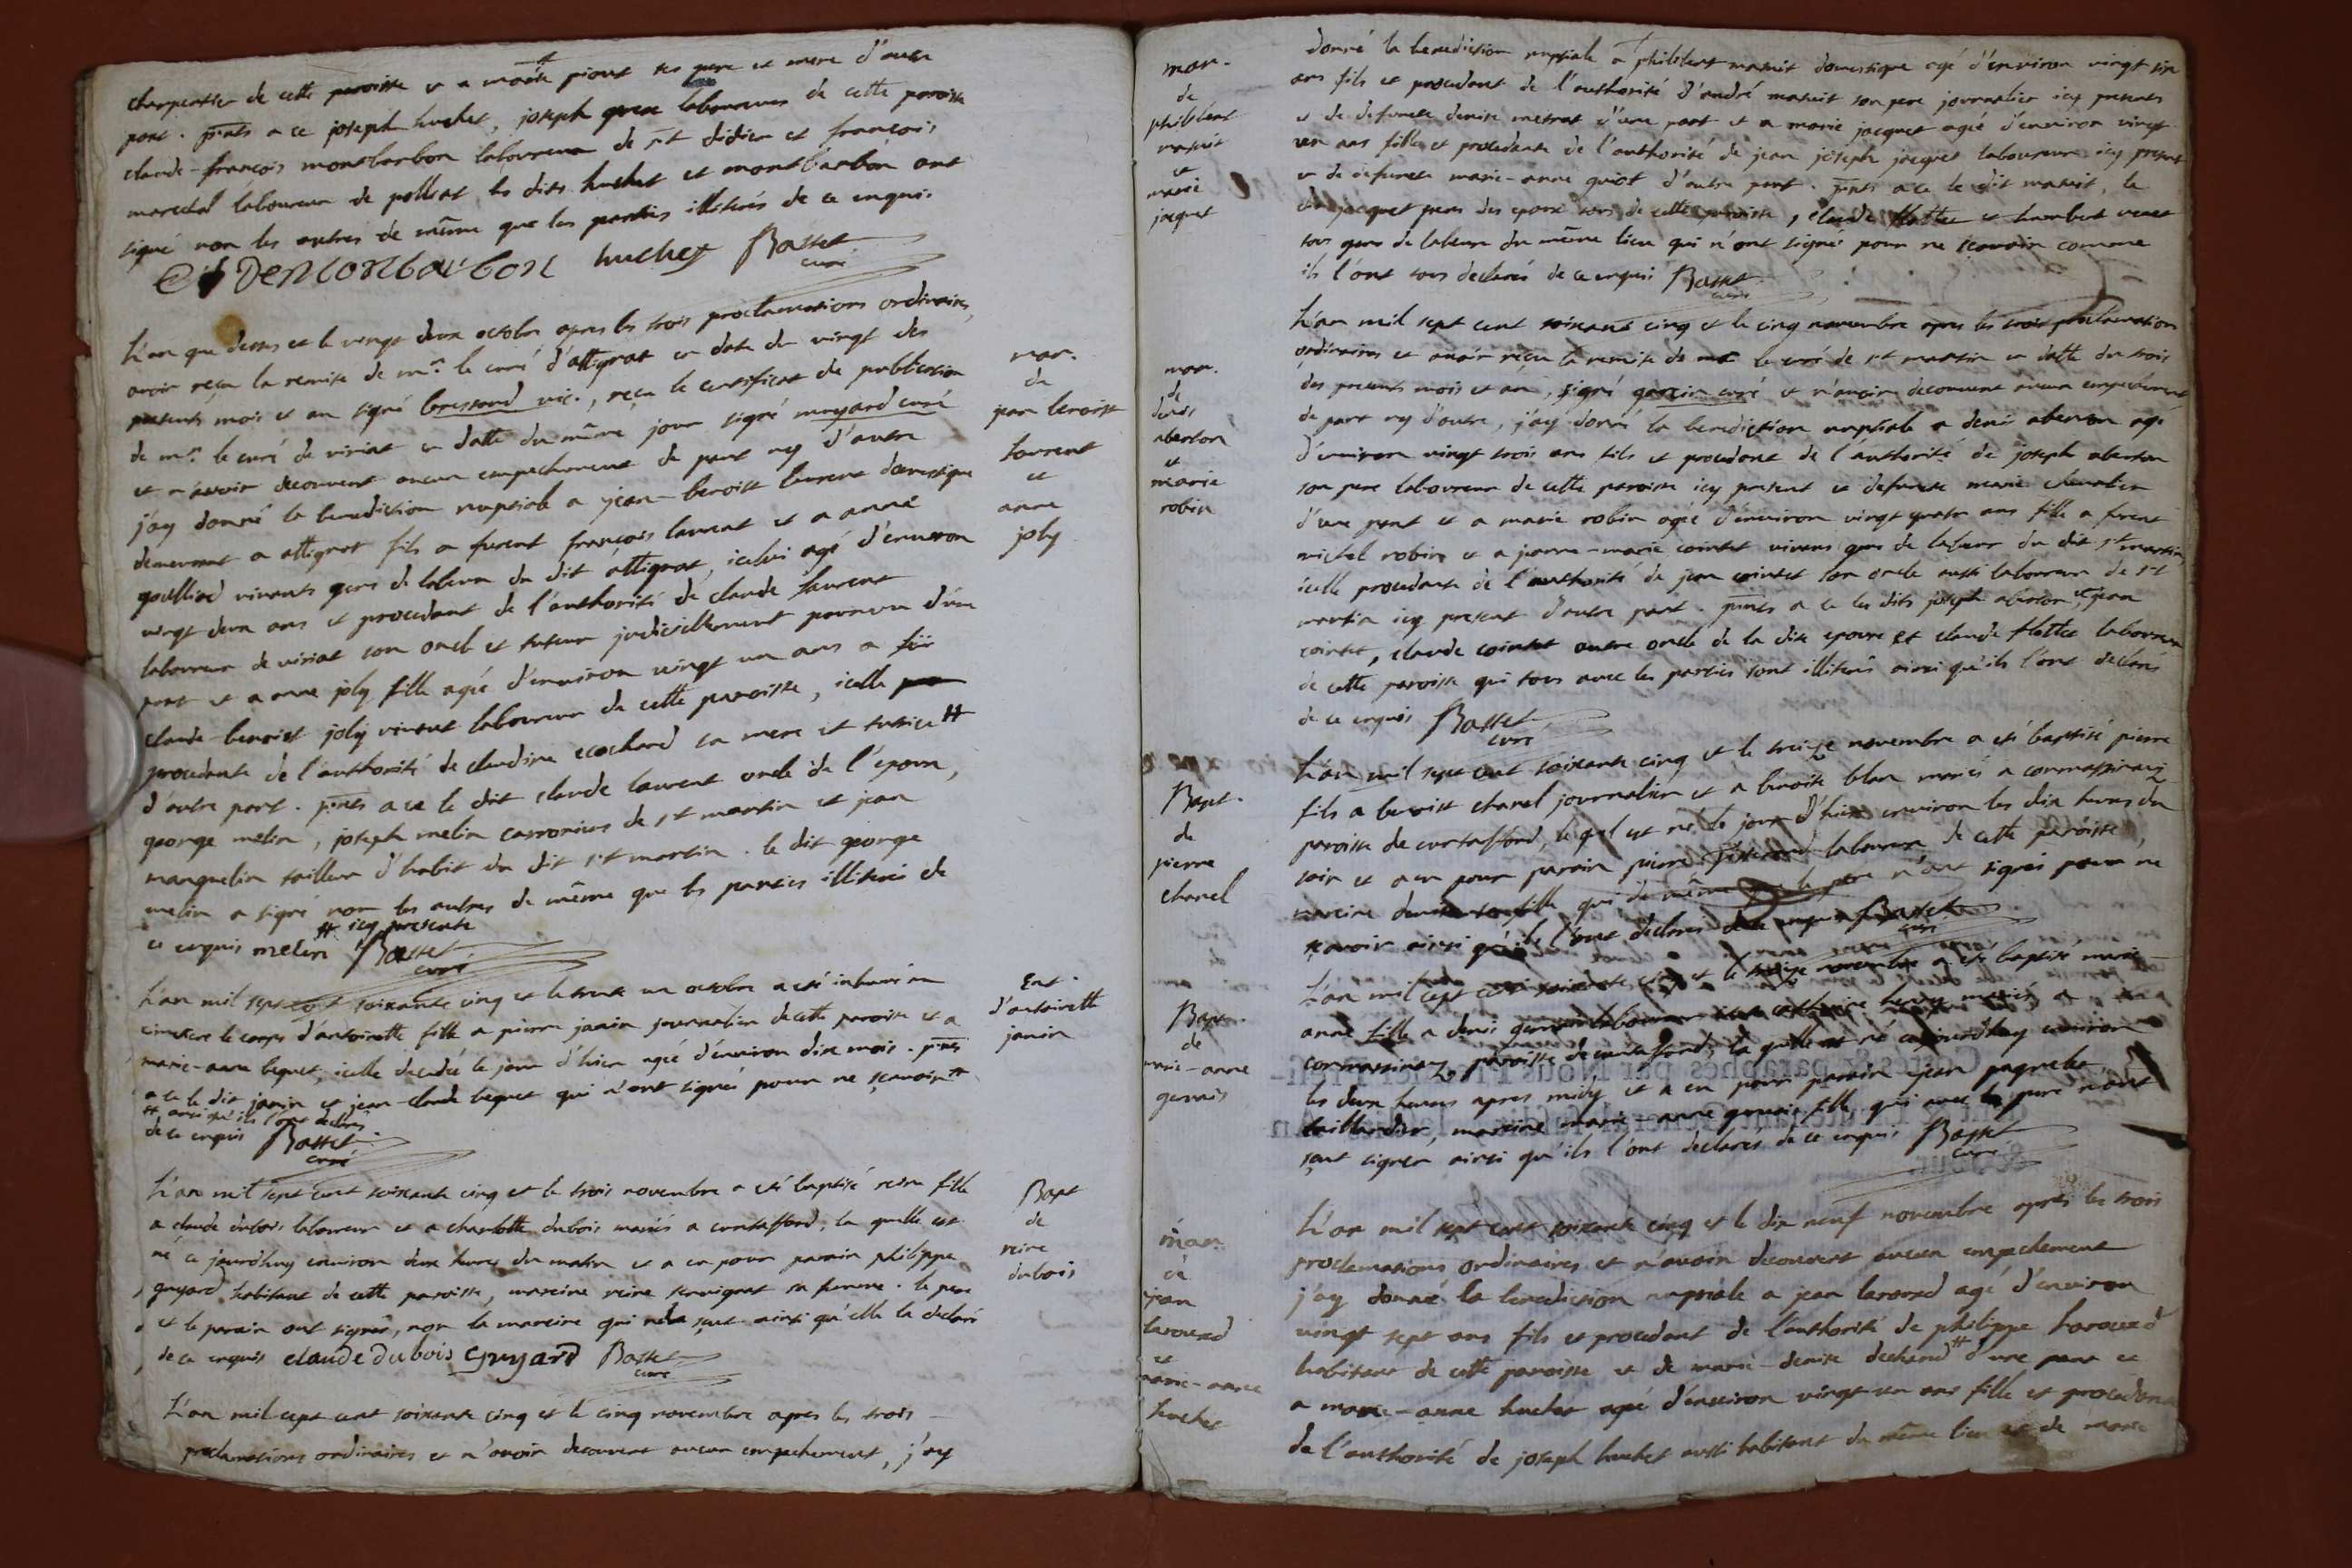 charpentier de cette paroisse et a moëtte pionet ses pere et mere d'autre
part. pnts a ce joseph huchet, joseph grese laboureurs de cette paroisse
claude-françois montbarbon laboureur de st didier et françois
marechal laboureur de polliat, les dits huchet et montbarbon ont
signé non les autres de même que les parties illiterés de ce enquis
Denionbarbon huchet Basset
curé
L'an que dessus et le vingt deux octobre apres les trois proclamations ordinaires,
avoir reçu la remise de mr. le curé d'attignat en date du vingt des
presents mois et an signé bressand vic., reçu le certificat de publication
de mr. le curé de viriat en datte du même jour signé moyard curé
et n'avoir decouvert aucun empechement de part ny d'autre
j'ay donné la benediction nuptiale a jean-benoist laurent domestique
demeurant a attignat fils a furent françois laurent et a anne
gouilliard vivants gens de labeur du dit attignat, icelui agé d'environ
vingt deux ans et procedant de l'authorité de claude laurent
laboureur de viriat son oncle et tuteur judiciellement pourvu d'une
part et a anne joly fille agée d'environ vingt un ans a fût
claude-benoist joly vivant laboureur de cette paroisse, icelle
procedante de l'authorité de claudine ecochard sa mere et tutrice #
d'autre part. pnts a ce le dit claude laurent oncle de l'epoux,
george melin, joseph melin carroniers de st martin et jean
manguelin tailleur d'habit du dit st martin. le dit george
melin a signé non les autres de même que les parties illiterés de
# icy presente
ce enquis melin Basset
curé
L'an mil sept cent soixante cinq et le trente un octobre a eté inhumé au
cimetiere le corps d'antoinette fille a pierre janin journalier de cette paroisse et a
marie-anne beguet, icelle decedée le jour d'hier agée d'environ dix mois. pnts
a ce le dit janin et jean-claude beguet qui n'ont signé pour ne sçavoir #
# ainsi qu'ils l'ont declaré
de ce enquis Basset
curé
L'an mil sept cent soixante cinq et le trois novembre a eté baptisé reine fille
a claude dubois laboureur et a charlotte dubois mariés a curtaffond, la quelle est
né ce jourdhuy environ deux heures du matin et a eu pour parain philippe
guyard habitant de cette paroisse, maraine reine servignat sa femme. le pere
et le parain ont signé, non la maraine qui ne sçait ainsi qu'elle la declaré
de ce enquis claude dubois Guyard Basset
curé
L'an mil sept cent soixante cinq et le cinq novembre apres les trois
proclamations ordinaires et n'avoir decouvert aucun empechement, j'ay
mar.
de
jean benoist
laurent
et
anne
joly
Ent.
d'antoinette
janin
Bapt
de
reine
dubois
donné la benediction nuptiale a philibert matuit domestique agé d'environ vingt six
ans fils et procedant de l'authorité d'andré matuit son pere journalier icy present
et de defunte denise metrat d'une part et a marie jacquet agée d'environ vingt
un ans fille et procedante de l'authorité de jean joseph jacquet laboureur icy present
et de defunte marie-anne guiot d'autre part. pnts a ce le dit matuit, le
dit jacquet peres des epoux tous de cette paroisse, claude flottet et humbert venet
tous gens de labeur du même lieu qui n'ont signé pour ne sçavoir comme
ils l'ont tous declarés de ce enquis Basset
curé
L'an mil sept cent soixante cinq et le cinq novembre apres les trois proclamations
ordinaires et avoir reçu la remise de mr le curé de st martin en datte du trois
des presents mois et an, signé garcin curé et n'avoir decouvert aucun empechement
de part ny d'autre, j'ay donné la benediction nuptiale a denis aberton agé
d'environ vingt trois ans fils et procedant de l'authorité de joseph aberton
son pere laboureur de cette paroisse icy present et defunte marie chevalier
d'une part et a marie robin agée d'environ vingt quatre ans fille a furent
michel robin et a jeanne-marie cointet vivans gens de labeur du dit st martin,
icelle procedante de l'authorité de jean cointet son oncle aussi laboureur de st
martin icy present d'autre part. pnts a ce les dits joseph aberton et jean
cointet, claude cointet autre oncle de la dite epouse et claude flottet laboureur
de cette paroisse qui tous avec les parties sont illiterés ainsi qu'ils l'ont declaré
de ce enquis Basset
curé
L'an mil sept cent soixante cinq et le treize novembre a eté baptisé pierre
fils a benoist chanel journalier et a benoite blan mariés a cormassinaz
paroisse de curtaffond, le quel est né le jour d'hier environ les dix heures du
soir et a eu pour parain pierre laboureur de cette paroisse,
maraine denise sa fille qui de même que le pere n'ont signés pour ne
sçavoir ainsi qu'ils l'ont declarés de ce enquis Basset
curé
L'an mil sept cent soixante cinq et le treize novembre a eté baptisé marie-
anne fille a denis gervais laboureur et a catherine mariés a
cormassinaz paroisse de curtaffond, la quelle est né ce jourdhuy environ
les deux heures apres midy et a eu pour parain jean paquelet
taillandier, maraine marie-anne gervais fille qui avec le pere n'ont
sçut signer ainsi qu'ils l'ont declarés de ce enquis Basset
curé
L'an mil sept cent soixante cinq et le dix neuf novembre apres les trois
proclamations ordinaires et n'avoir decouvert aucun empechement
j'ay donné la benediction nuptiale a jean larourd agé d'environ
vingt sept ans fils et procedant de l'authorité de philippe larourd
habitant de cette paroisse et de marie-denise dechand # d'une part et
a marie-anne huchet agée d'environ vingt un ans fille et procedante
de l'authorité de joseph huchet aussi habitant du même lieu et de marie
mar.
de
philibert
matuit
et
marie
jacquet
mar.
de
denis
aberton
et
marie
robin
Bapt.
de
pierre
chanel
Bapt.
de
marie-anne
gervais
mar
de
jean
larourd
et
marie-anne
huchet